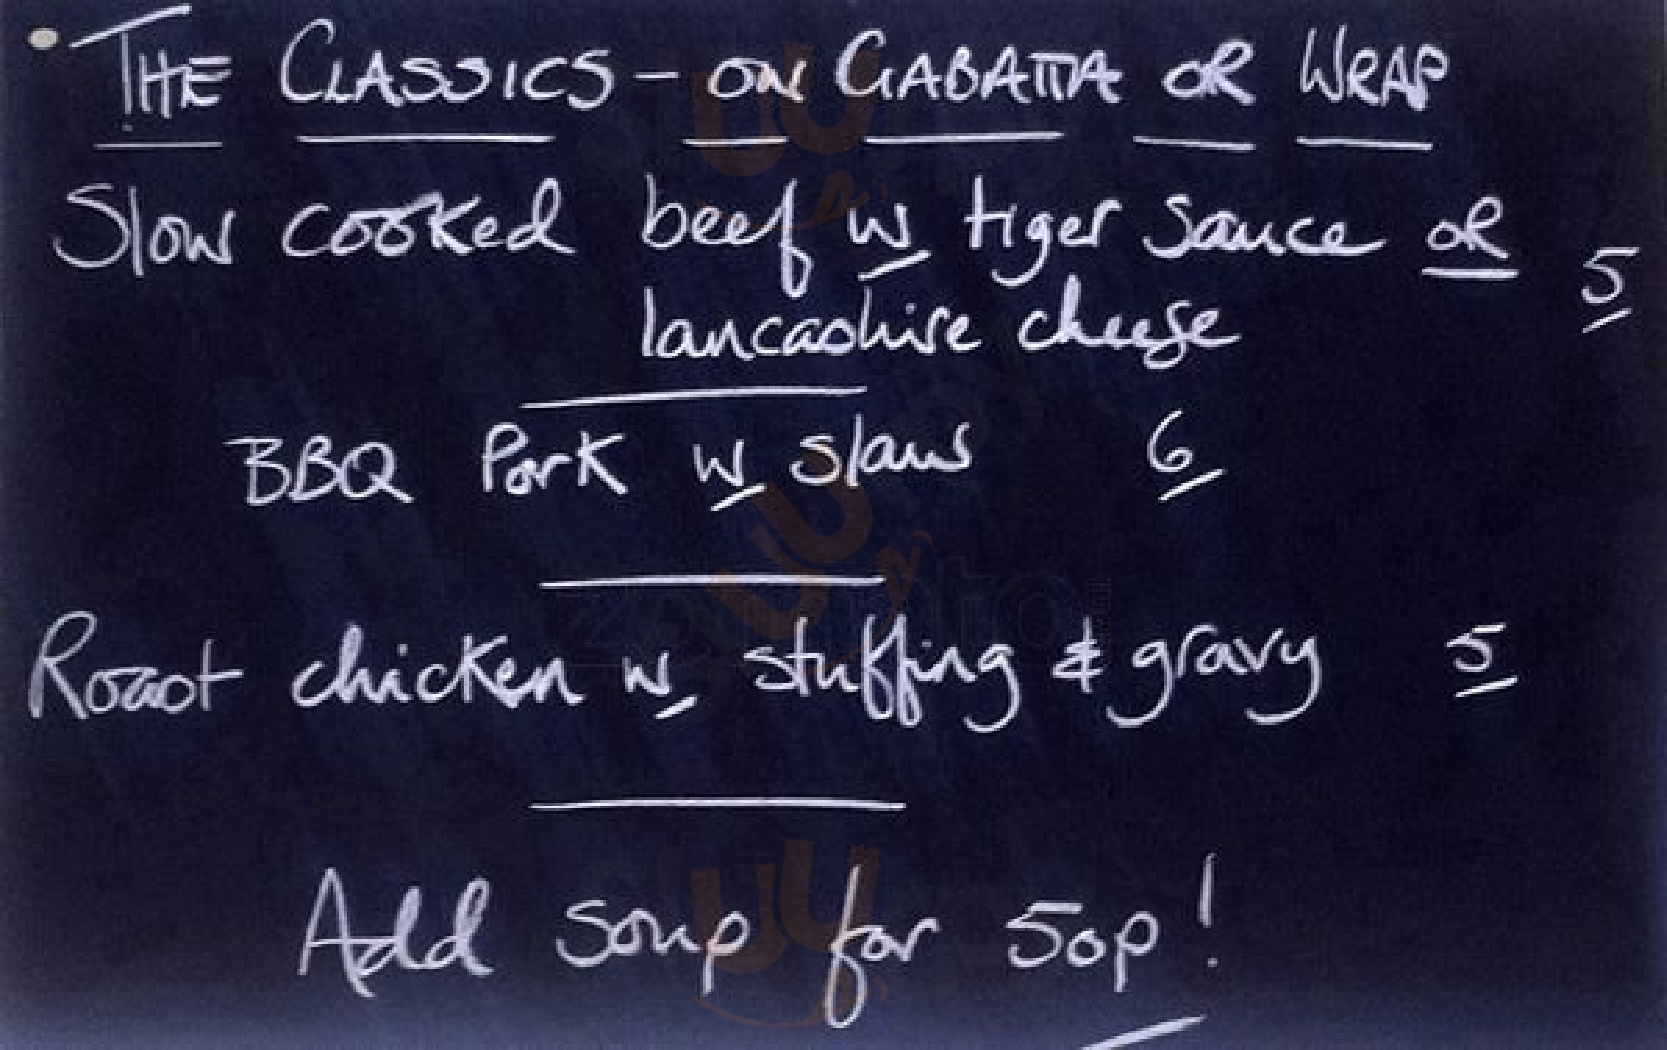 THE CLASSICS - ON CIABATTA OR WRAP
Slow cooked beef w tiger sauce OR 5
lancashire cheese
BBQ Pork w slaw 6
Roast chicken w stuffing & gravy 5
Add soup for 50p!